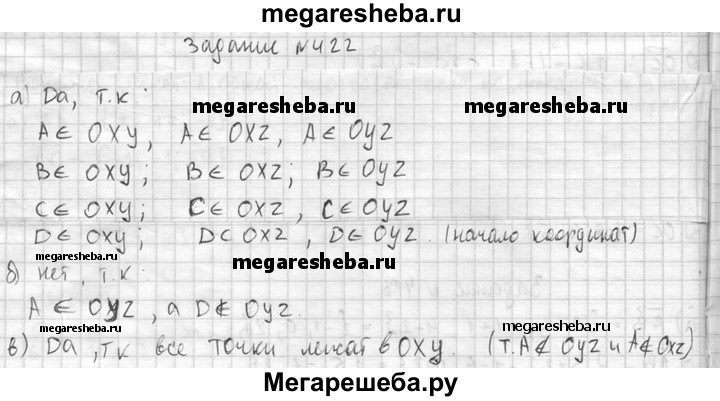 megaresheba.ru
Задание №422
а) Да, т.к :
megaresheba.ru megaresheba.ru
A ∈ OXY, A ∈ OXZ, A ∈ OYZ
B ∈ OXY; B ∈ OXZ; B ∈ OYZ
C ∈ OXY; C ∈ OXZ, C ∈ OYZ
D ∈ OXY; D ⊂ OXZ, D ∈ OYZ. (начало координат)
б) нет, т.к :
megaresheba.ru
A ∈ OYZ, а D ∉ OYZ.
megaresheba.ru megaresheba.ru
в) Да, тк все точки лежат в OXY. (т.A ∉ OYZ и A ∉ OXZ)
Мегарешеба.ру